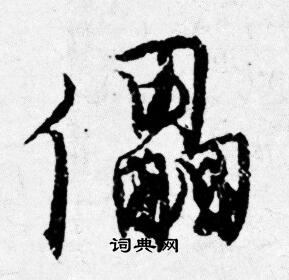 儡
词典网